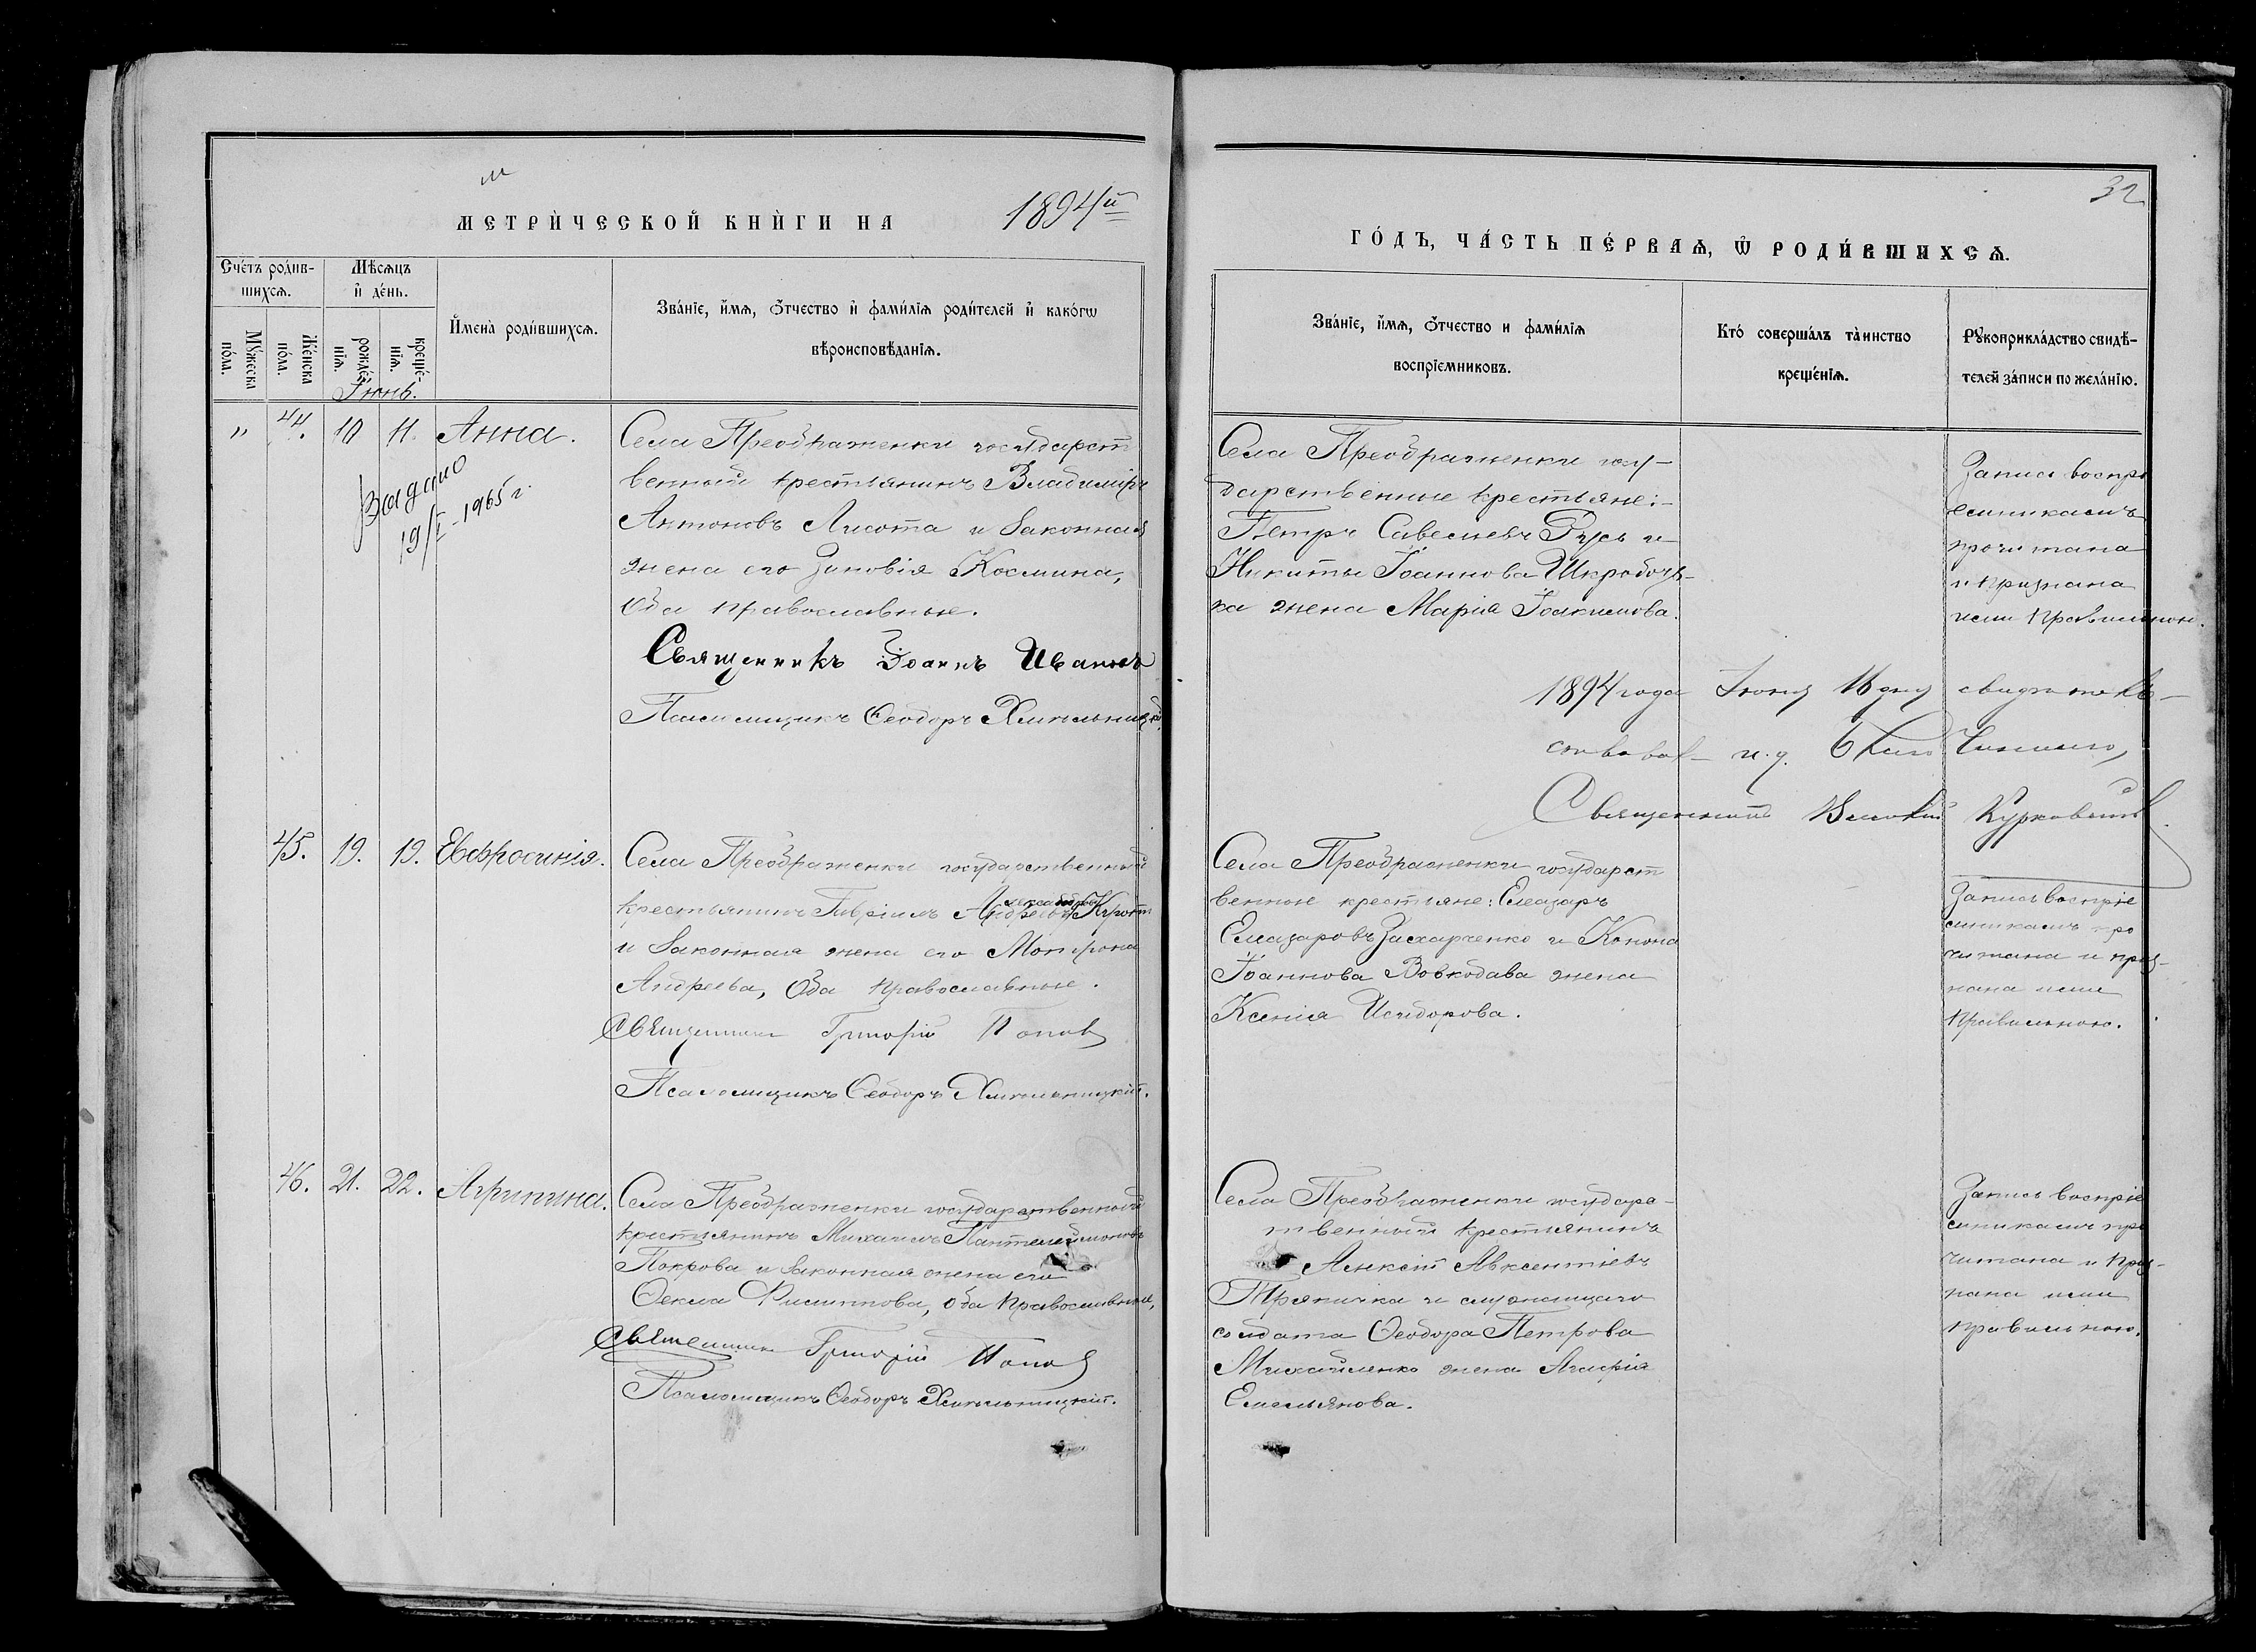 32
1894й
МЕТРИ́ЧЕСКОЙ КНИ́ГИ НА
ГО́ДЪ, ЧА́СТЬ ПЕ́РВАѦ, Ѿ РОДИ́ВШИХСѦ.
Сче́тъ роди́в-
шихсѧ.
Мѣсѧцъ
и҆ де́нь.
Мꙋ́жеска
по́ла.
Же́нска
по́ла.
рожде́-
нїѧ.
креще́-
нїѧ.
И҆мена̀ роди́вшихсѧ.
Зва́нїе, и҆́мѧ, ѻ҆́тчество и҆ фами́лїѧ роди́телей и҆ како́гѡ
вѣроисповѣ́данїѧ.
Зва́нїе, и҆́мѧ, ѻ҆́тчество и фами́лїѧ
воспрїе́мниковъ.
Кто́ соверша́лъ та̀инство
креще́нїѧ.
Рꙋкоприкла́дство свидѣ́-
телей за́писи по жела́нїю.
Іюнь.
" 44. 10 11. Анна.
Видано
19/I-1965 г.
Села Преображенки государст
венный крестьянинъ Владиміръ
Антоновъ Лисота и законная
жена его Зиновія Космина,
оба православные.
Священникъ Іоаннъ Ивановъ
Псаломщикъ Ѳеодоръ Хмельницкій.
Села Преображенки госу-
дарственные крестьяне:-
Петръ Савельевъ Русь и
Никиты Іоаннова Шкробоч-
ка жена Марія Іоакимова.
Запись воспрі
емникамъ
прочитана
и признана
ими правильною.
1894 года Іюня 16 дня свидѣтель-
ствовал и.д. Благочиннаго,
Священникъ Василій
45. 19. 19. Евфросинія.
Села Преображенки государственный
крестьянинъ Гавріилъ Александровъ Кротъ
и законная жена его Матрона
Андреева, оба православные.
Священникъ Григорій Попов
Псаломщикъ Ѳеодоръ Хмельницкій.
Села Преображенки государст
венные крестьяне: Елеазаръ
Елеазаровъ Захарченко и Конона
Іоаннова Вовкодава жена
Ксенія Исидорова.
Запись воспріе
мникамъ про
читана и приз-
нана ими
правильною.
46. 21. 22. Агрипина.
Села Преображенки государственный
крестьянинъ Михаилъ Пантелеймоновъ
Покрова и законная жена его
Ѳекла Филиппова, оба православные,
Священник Григорій Попов
Псаломщикъ Ѳеодоръ Хмельницкій.
Села Преображенки государс-
твенный крестьянинъ
Алексій Авксентіевъ
Тряпичка и служащаго
солдата Ѳеодора Петрова
Михайленко жена Агафія
Емельянова.
Запись воспріе
мникамъ про
читана и приз-
нана ими
правильною.